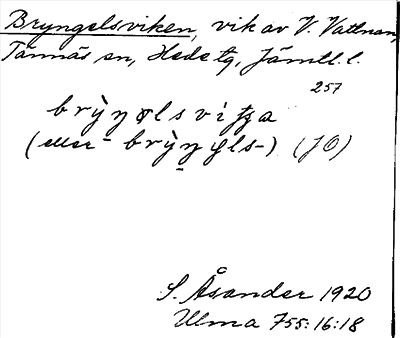 Bryngelsviken, vik av V. Vattnan,
Tännäs sn, Hede tg, Jämtl. l.
257
brỳŋəlsviƫʂa
(eller - brỳŋəls-) (JO)
S. Åsander 1920
Ulma 755:16:18